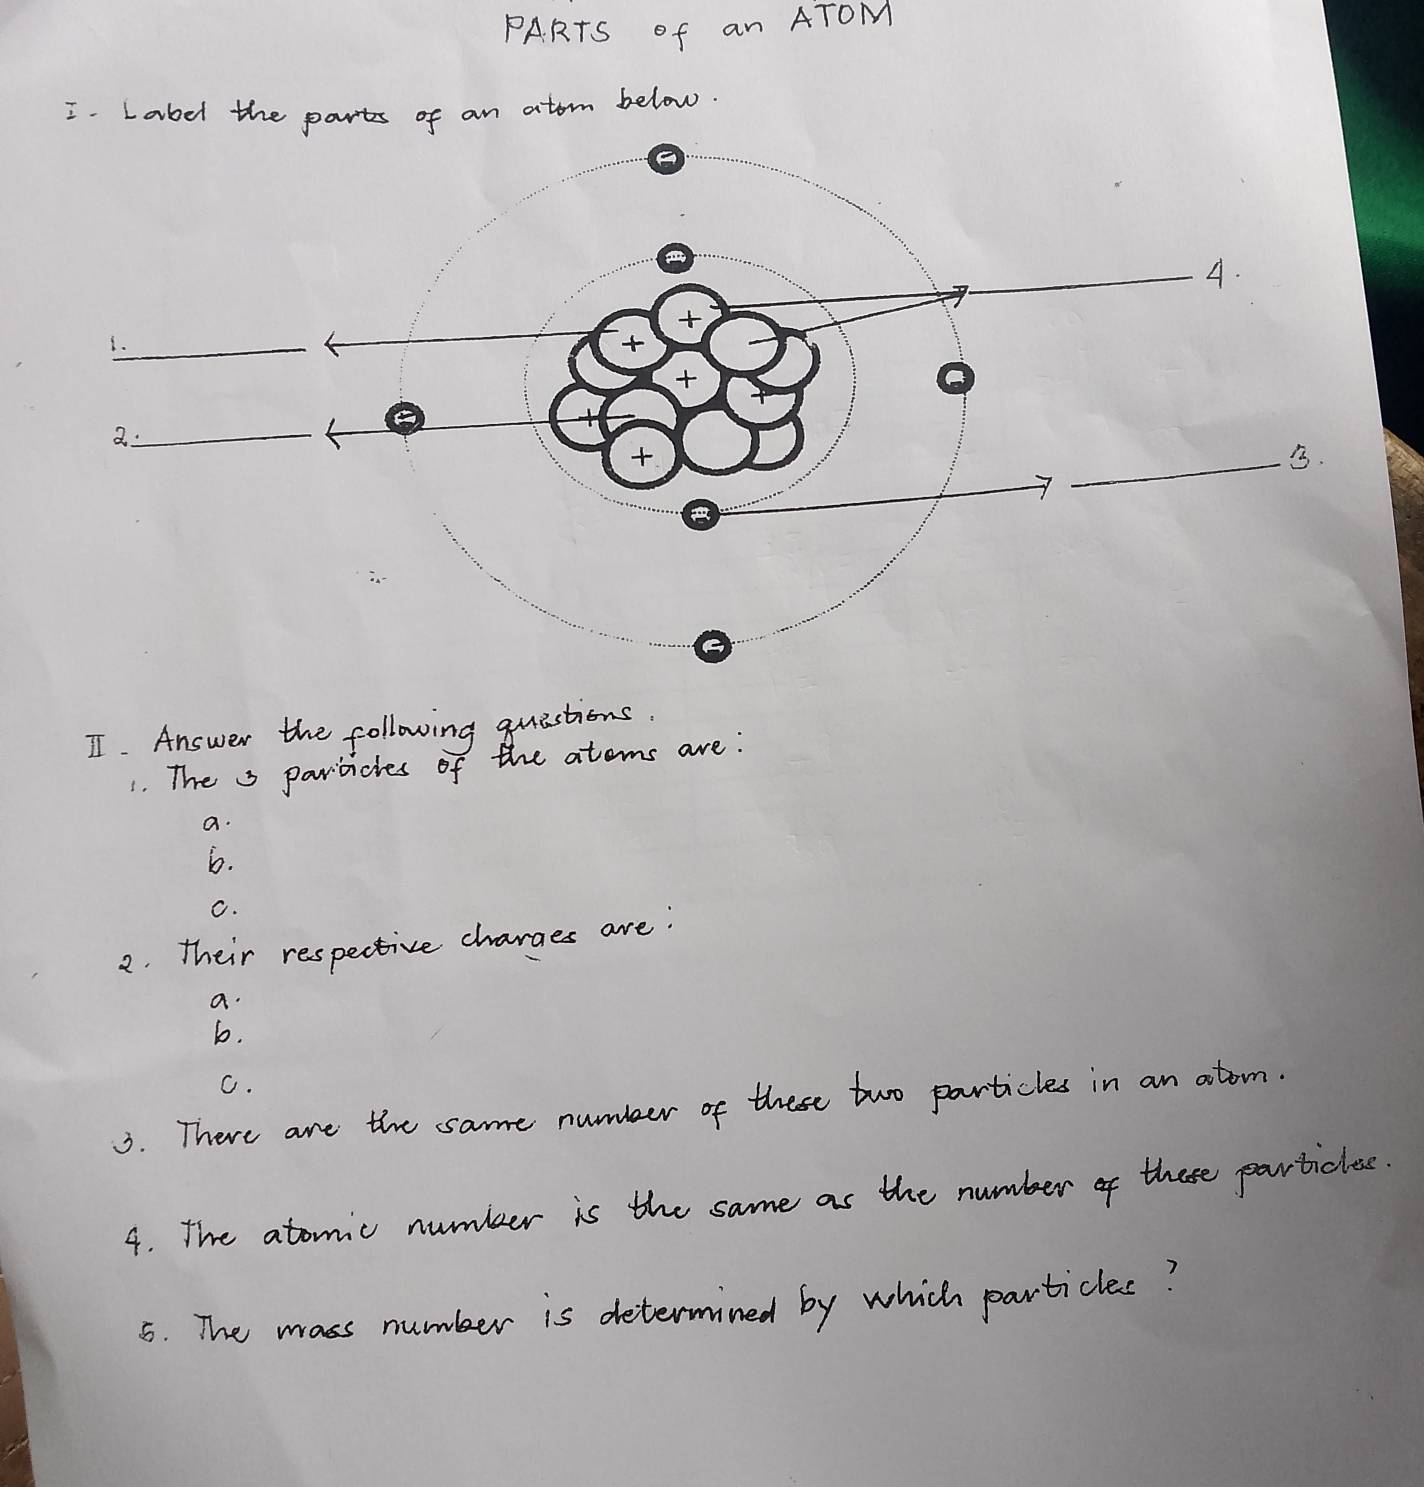 PARTS of an ATOM
I - Label the parts of an atom below.
4.
1.
+
+
+
+
+
2.
+
3.
II - Answer the following questions.
1. The 3 particles of the atoms are:
a.
b.
c.
2. Their respective charges are:
a.
b.
c.
3. There are the same number of these two particles in an atom.
4. The atomic number is the same as the number of these particles.
5. The mass number is determined by which particles?